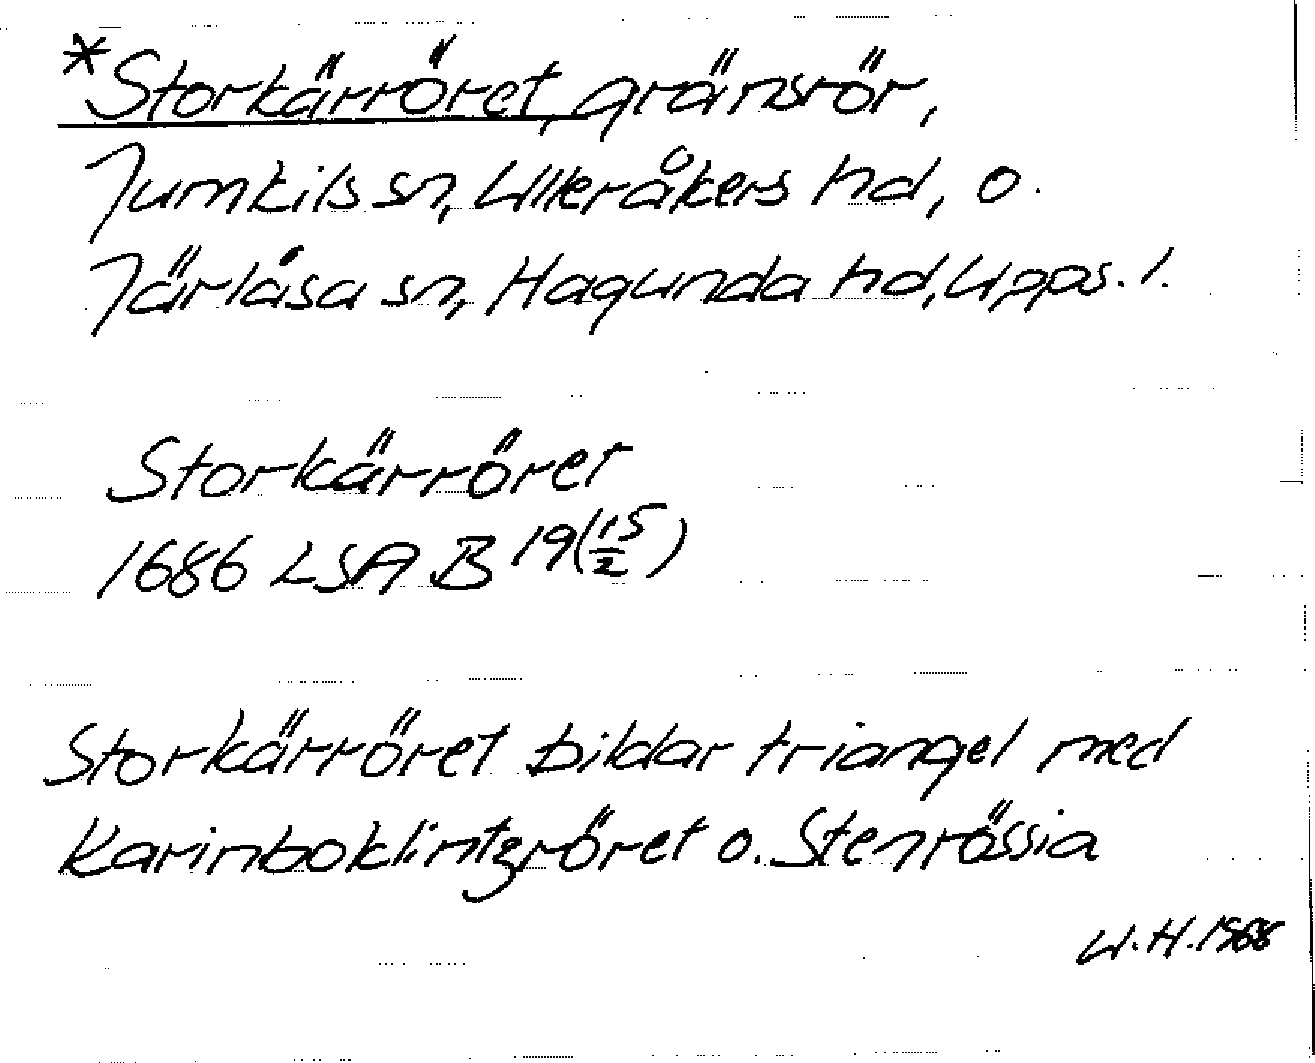 *Storkärröret, gränsrör,
Jumkils sn, Ulleråkers hd, o.
Järlåsa sn, Hagunda hd, Upps. l.
Storkärröret
1686 LSA B 19(15/2)
Storkärröret bildar triangel med
Karinboklintzröret o. Stenrössia
W.H. 1968